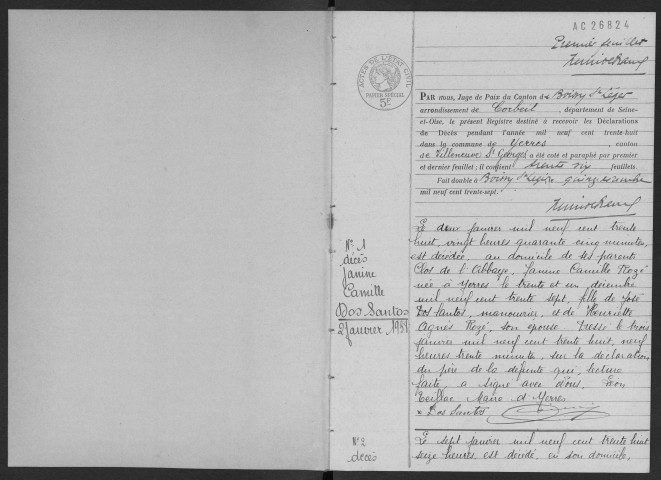 AC 26824
Premier feuillet
ACTES DE L'ETAT CIVIL
PAPIER SPECIAL
5F
PAR nous, Juge de Paix du Canton de Boissy St Léger
arrondissement de Corbeil, département de Seine-
et-Oise, le présent Registre destiné à recevoir les Déclarations
de Décès pendant l'année mil neuf cent trente-huit
dans la commune de Yerres, canton
de Villeneuve St Georges a été coté et paraphé par premier
et dernier feuillet; il contient trente six feuillets.
Fait double à Boissy St Léger quinze
mil neuf cent trente-sept.
N° 1
décès
Janine
Camille
Dos Santos
2 janvier 1938
Le deux janvier mil neuf cent trente
huit, vingt heures quarante cinq minutes,
est décédée, au domicile de ses parents
Clos de l'Abbaye, Janine Camille Rozé
née à Yerres le trente et un décembre
mil neuf cent trente sept, fille de José
Dos Santos, manouvrier, et de Henriette
Agnès Rozé, son épouse. Dressé le trois
janvier mil neuf cent trente huit, neuf
heures trente minute, sur la déclaration
du père de la défunte qui, lecture
faite, a signé avec Nous. Léon
Maire d'Yerres
Dos Santos
N° 2
décès
Le sept janvier mil neuf cent trente huit
seize heures, est décédé, en son domicile,